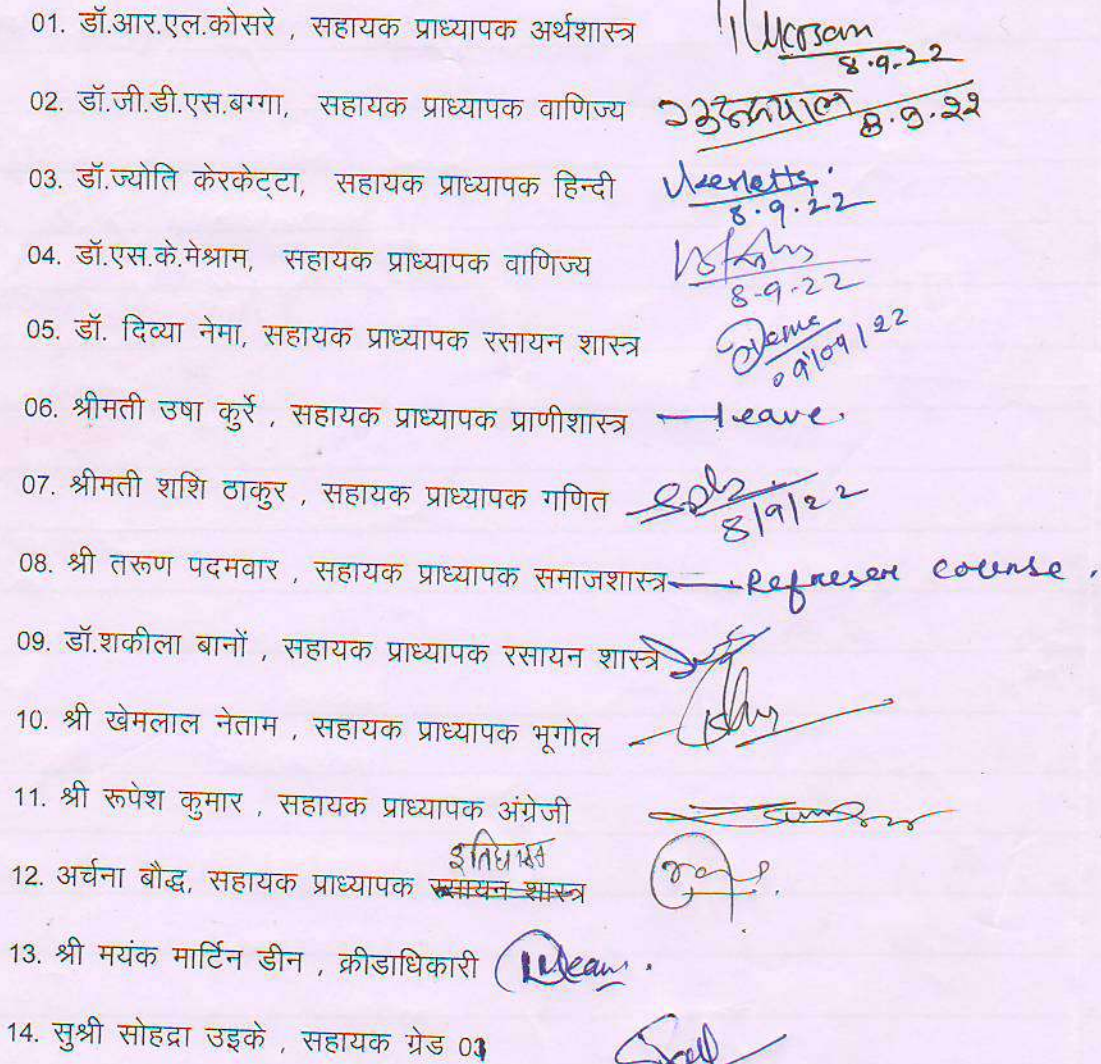 01. डॉ.आर.एल.कोसरे , सहायक प्राध्यापक अर्थशास्त्र
8.9.22
02. डॉ.जी.डी.एस.बग्गा, सहायक प्राध्यापक वाणिज्य 8.9.22
03. डॉ.ज्योति केरकेट्टा, सहायक प्राध्यापक हिन्दी
8.9.22
04. डॉ.एस.के.मेश्राम, सहायक प्राध्यापक वाणिज्य
8-9-22
05. डॉ. दिव्या नेमा, सहायक प्राध्यापक रसायन शास्त्र
09/09/22
06. श्रीमती उषा कुर्रे , सहायक प्राध्यापक प्राणीशास्त्र — leave.
07. श्रीमती शशि ठाकुर , सहायक प्राध्यापक गणित
8/9/22
08. श्री तरूण पदमवार , सहायक प्राध्यापक समाजशास्त्र — Refreser course .
09. डॉ.शकीला बानों , सहायक प्राध्यापक रसायन शास्त्र
10. श्री खेमलाल नेताम , सहायक प्राध्यापक भूगोल
11. श्री रूपेश कुमार , सहायक प्राध्यापक अंग्रेजी
इतिहास
12. अर्चना बौद्ध, सहायक प्राध्यापक रसायन शास्त्र
13. श्री मयंक मार्टिन डीन , क्रीडाधिकारी
14. सुश्री सोहद्रा उइके , सहायक ग्रेड 03